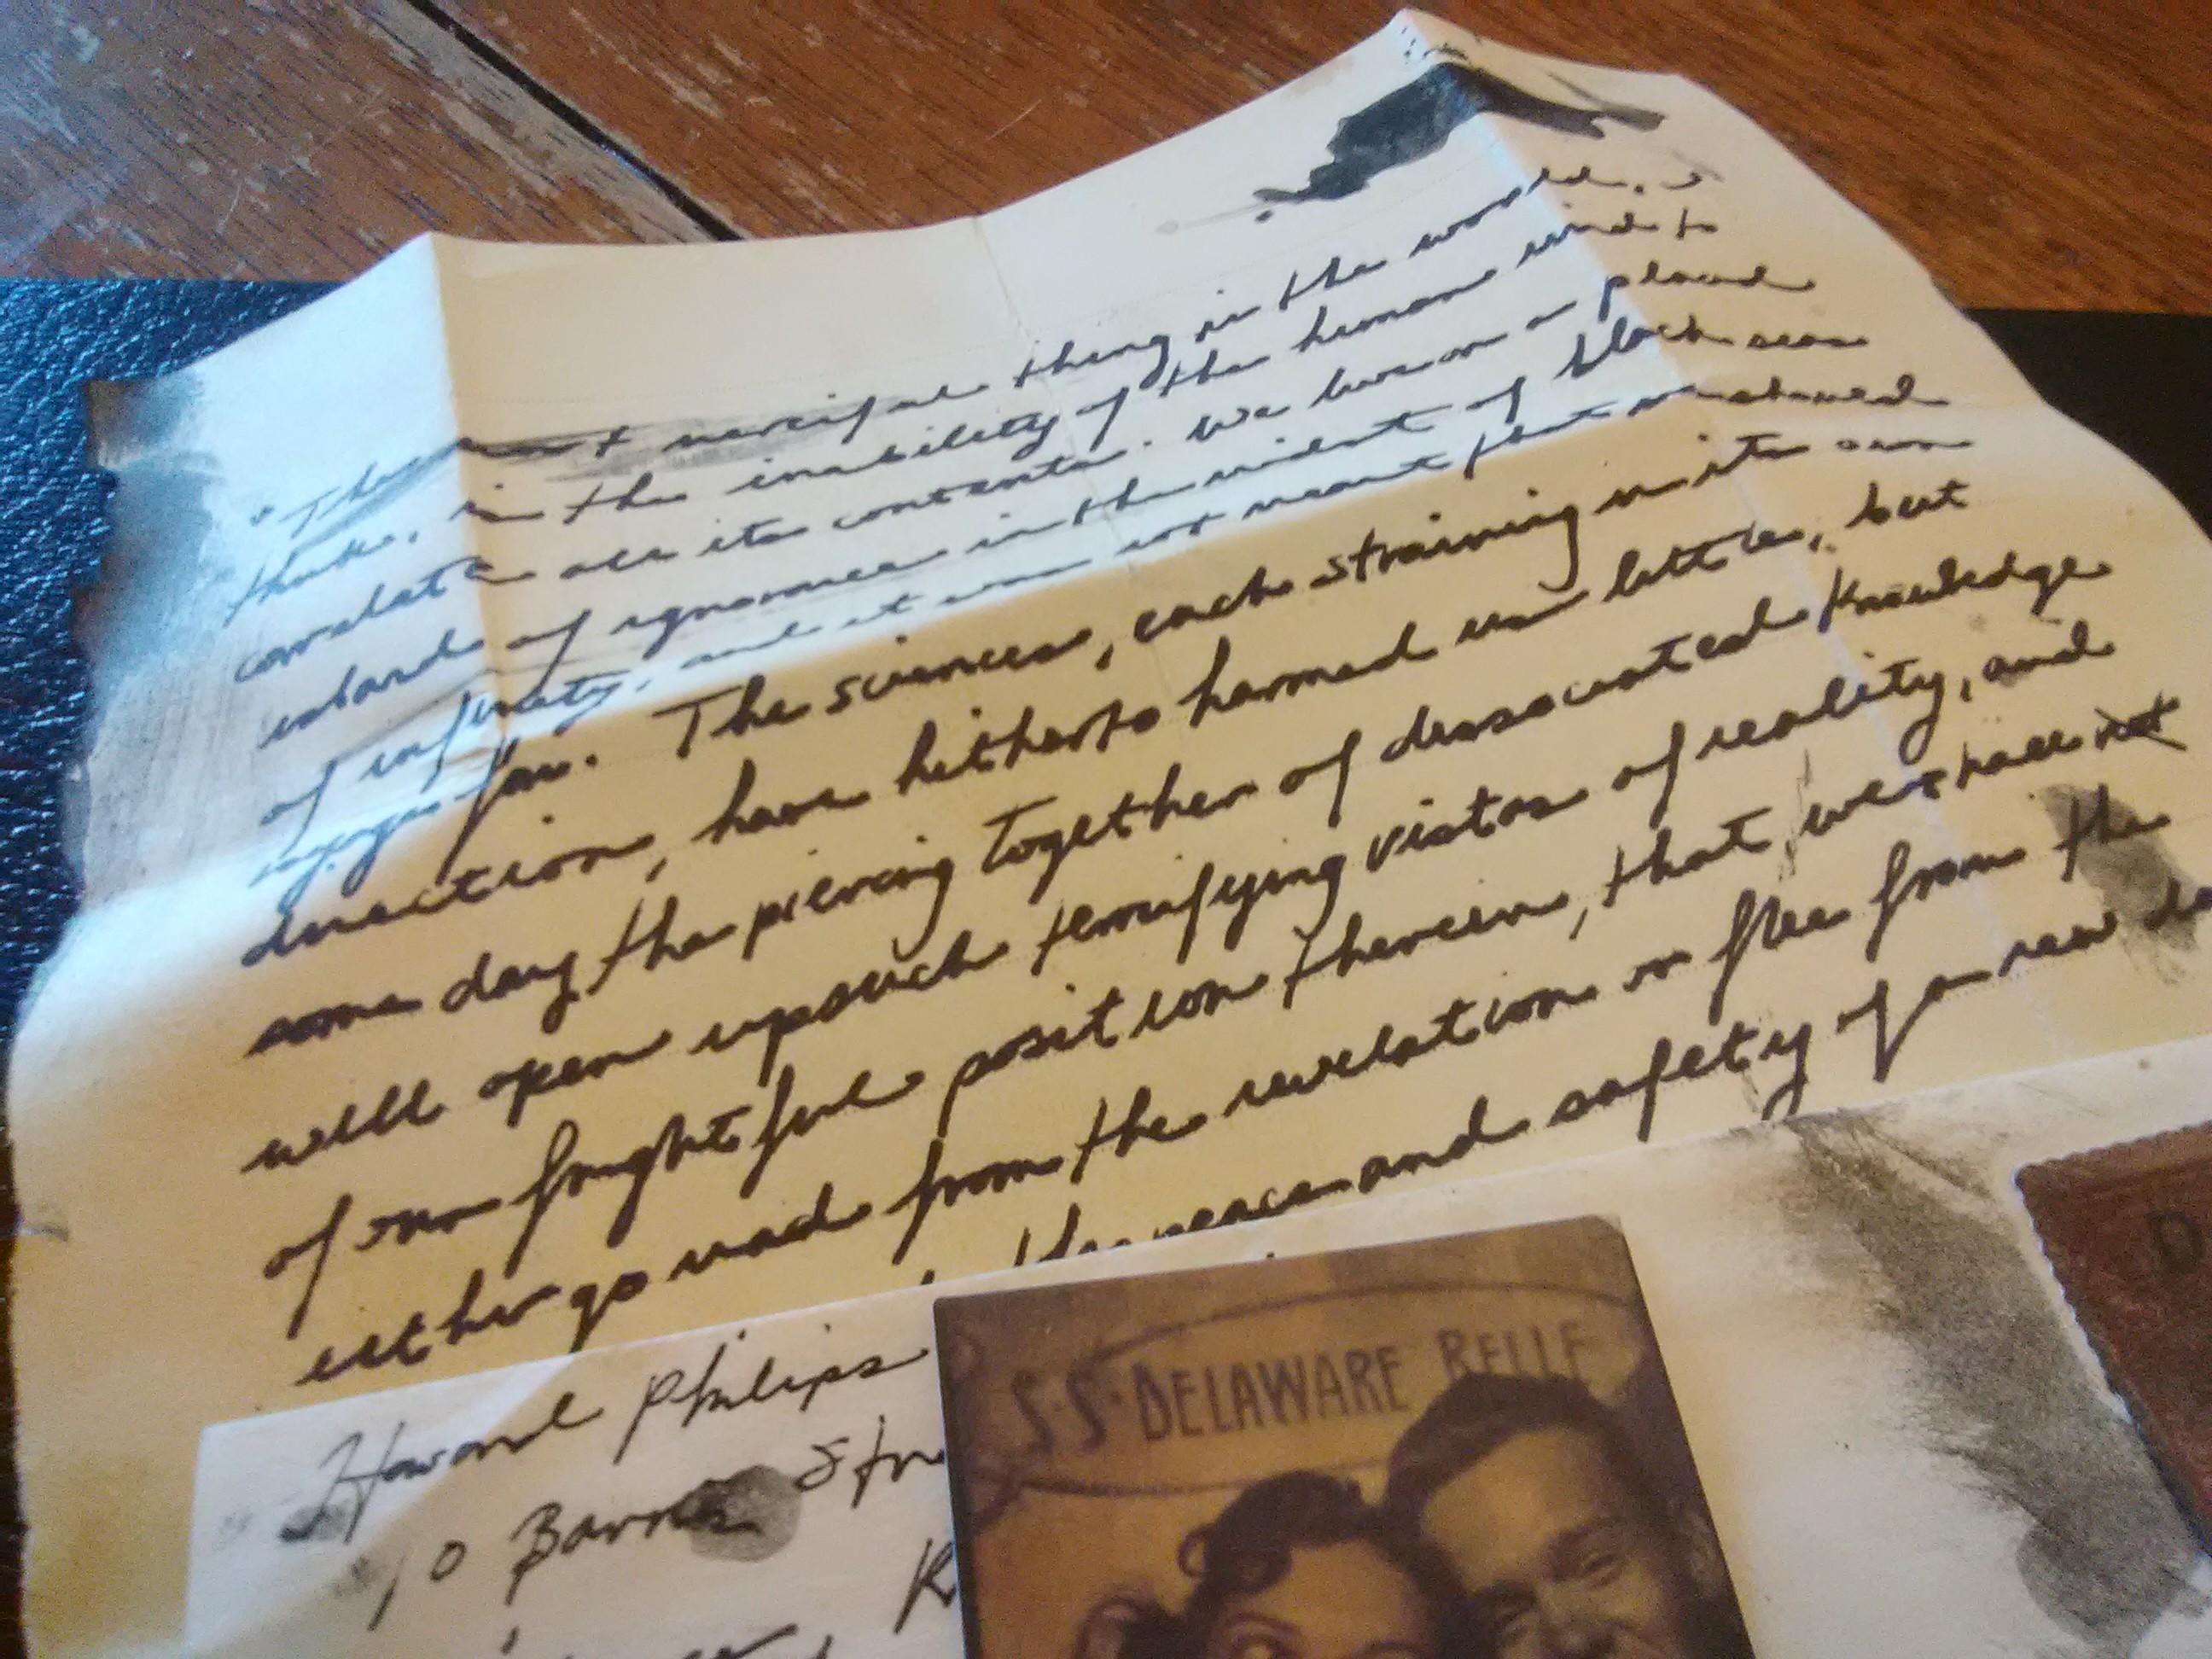 "The most merciful thing in the world, I
think, is the inability of the human mind to
correlate all its contents. We live on a placid
islands of ignorance in the midst of black seas
of infinity, and it was not meant that we should
voyage far. The sciences, each straining in its own
direction, have hitherto harmed us little, but
some day the piercing together of dissociated knowledge
will open up such terrifying vistas of reality, and
of our frightful position therein, that we shall not
either go mad from the revelation or flee from the
the peace and safety of a new da
Howard Philips
10 Barnes Stre
R
S·S·DELAWARE BELLE
D